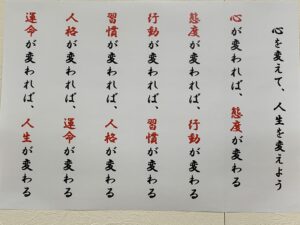 心を変えて、人生を変えよう
心が変われば、態度が変わる
態度が変われば、行動が変わる
行動が変われば、習慣が変わる
習慣が変われば、人格が変わる
人格が変われば、運命が変わる
運命が変われば、人生が変わる